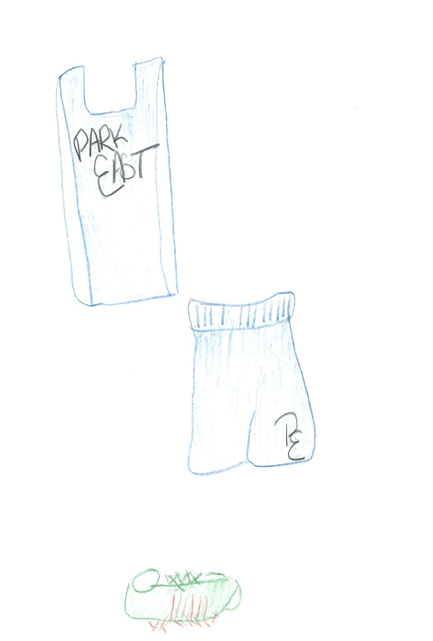 PARK
EAST
PE